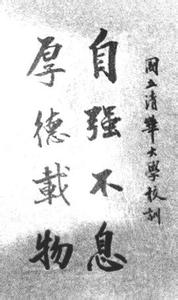 国立清華大學校訓
自强不息
厚德載物